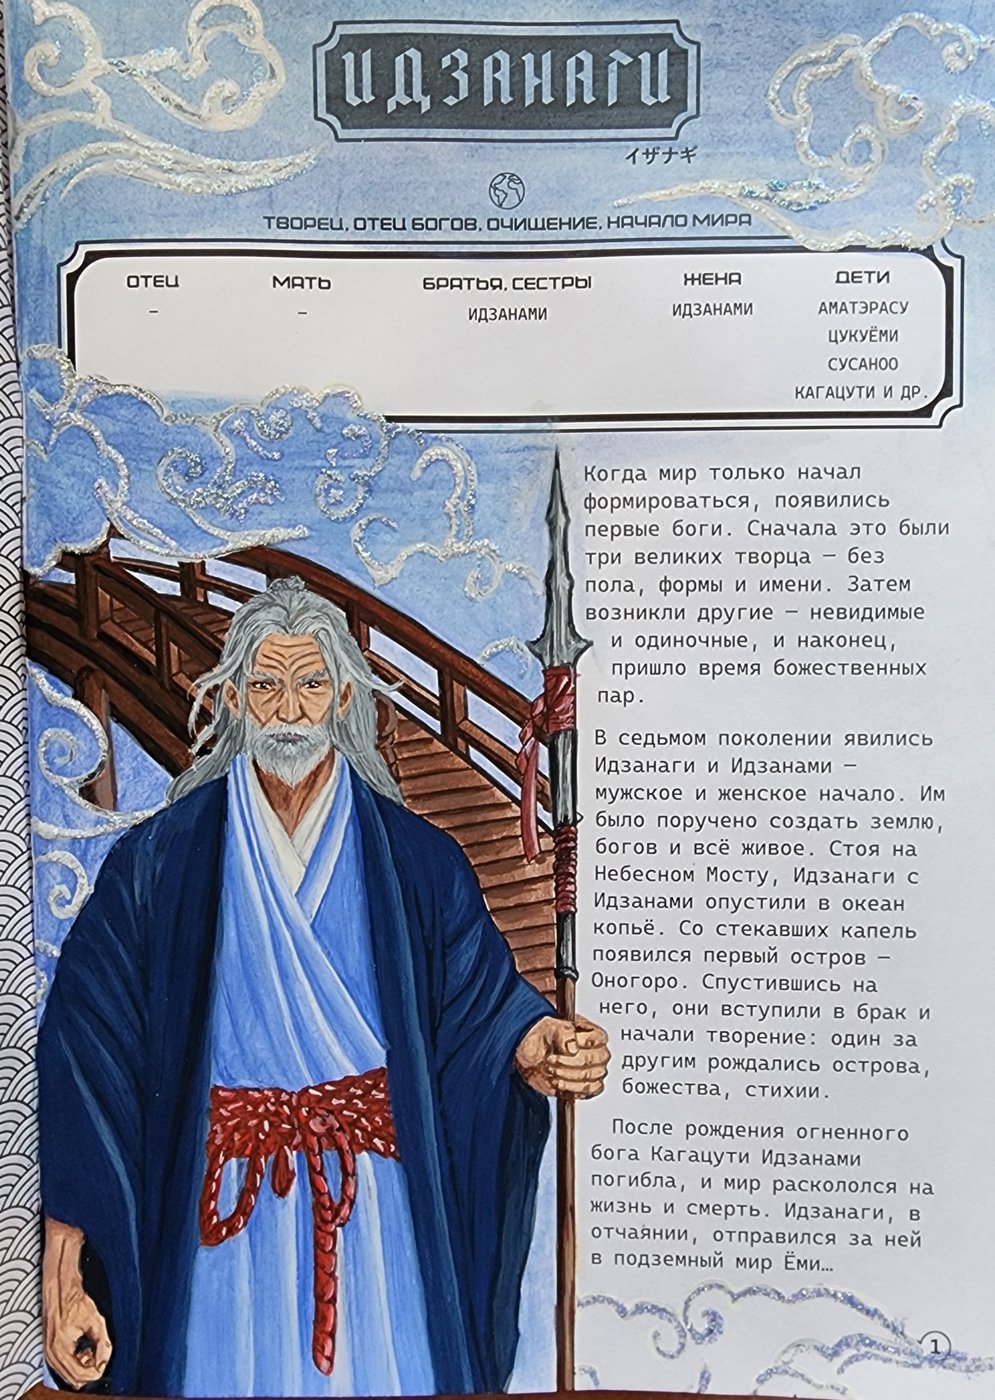 ИДЗАНАГИ
イザナギ
ТВОРЕЦ, ОТЕЦ БОГОВ, ОЧИЩЕНИЕ, НАЧАЛО МИРА
ОТЕЦ МАТЬ БРАТЬЯ, СЕСТРЫ ЖЕНА ДЕТИ
– – ИДЗАНАМИ ИДЗАНАМИ АМАТЭРАСУ
ЦУКУЁМИ
СУСАНОО
КАГАЦУТИ И ДР.
Когда мир только начал
формироваться, появились
первые боги. Сначала это были
три великих творца – без
пола, формы и имени. Затем
возникли другие – невидимые
и одиночные, и наконец,
пришло время божественных
пар.
В седьмом поколении явились
Идзанаги и Идзанами –
мужское и женское начало. Им
было поручено создать землю,
богов и всё живое. Стоя на
Небесном Мосту, Идзанаги с
Идзанами опустили в океан
копьё. Со стекавших капель
появился первый остров –
Оногоро. Спустившись на
него, они вступили в брак и
начали творение: один за
другим рождались острова,
божества, стихии.
После рождения огненного
бога Кагацути Идзанами
погибла, и мир раскололся на
жизнь и смерть. Идзанаги, в
отчаянии, отправился за ней
в подземный мир Ёми…
1